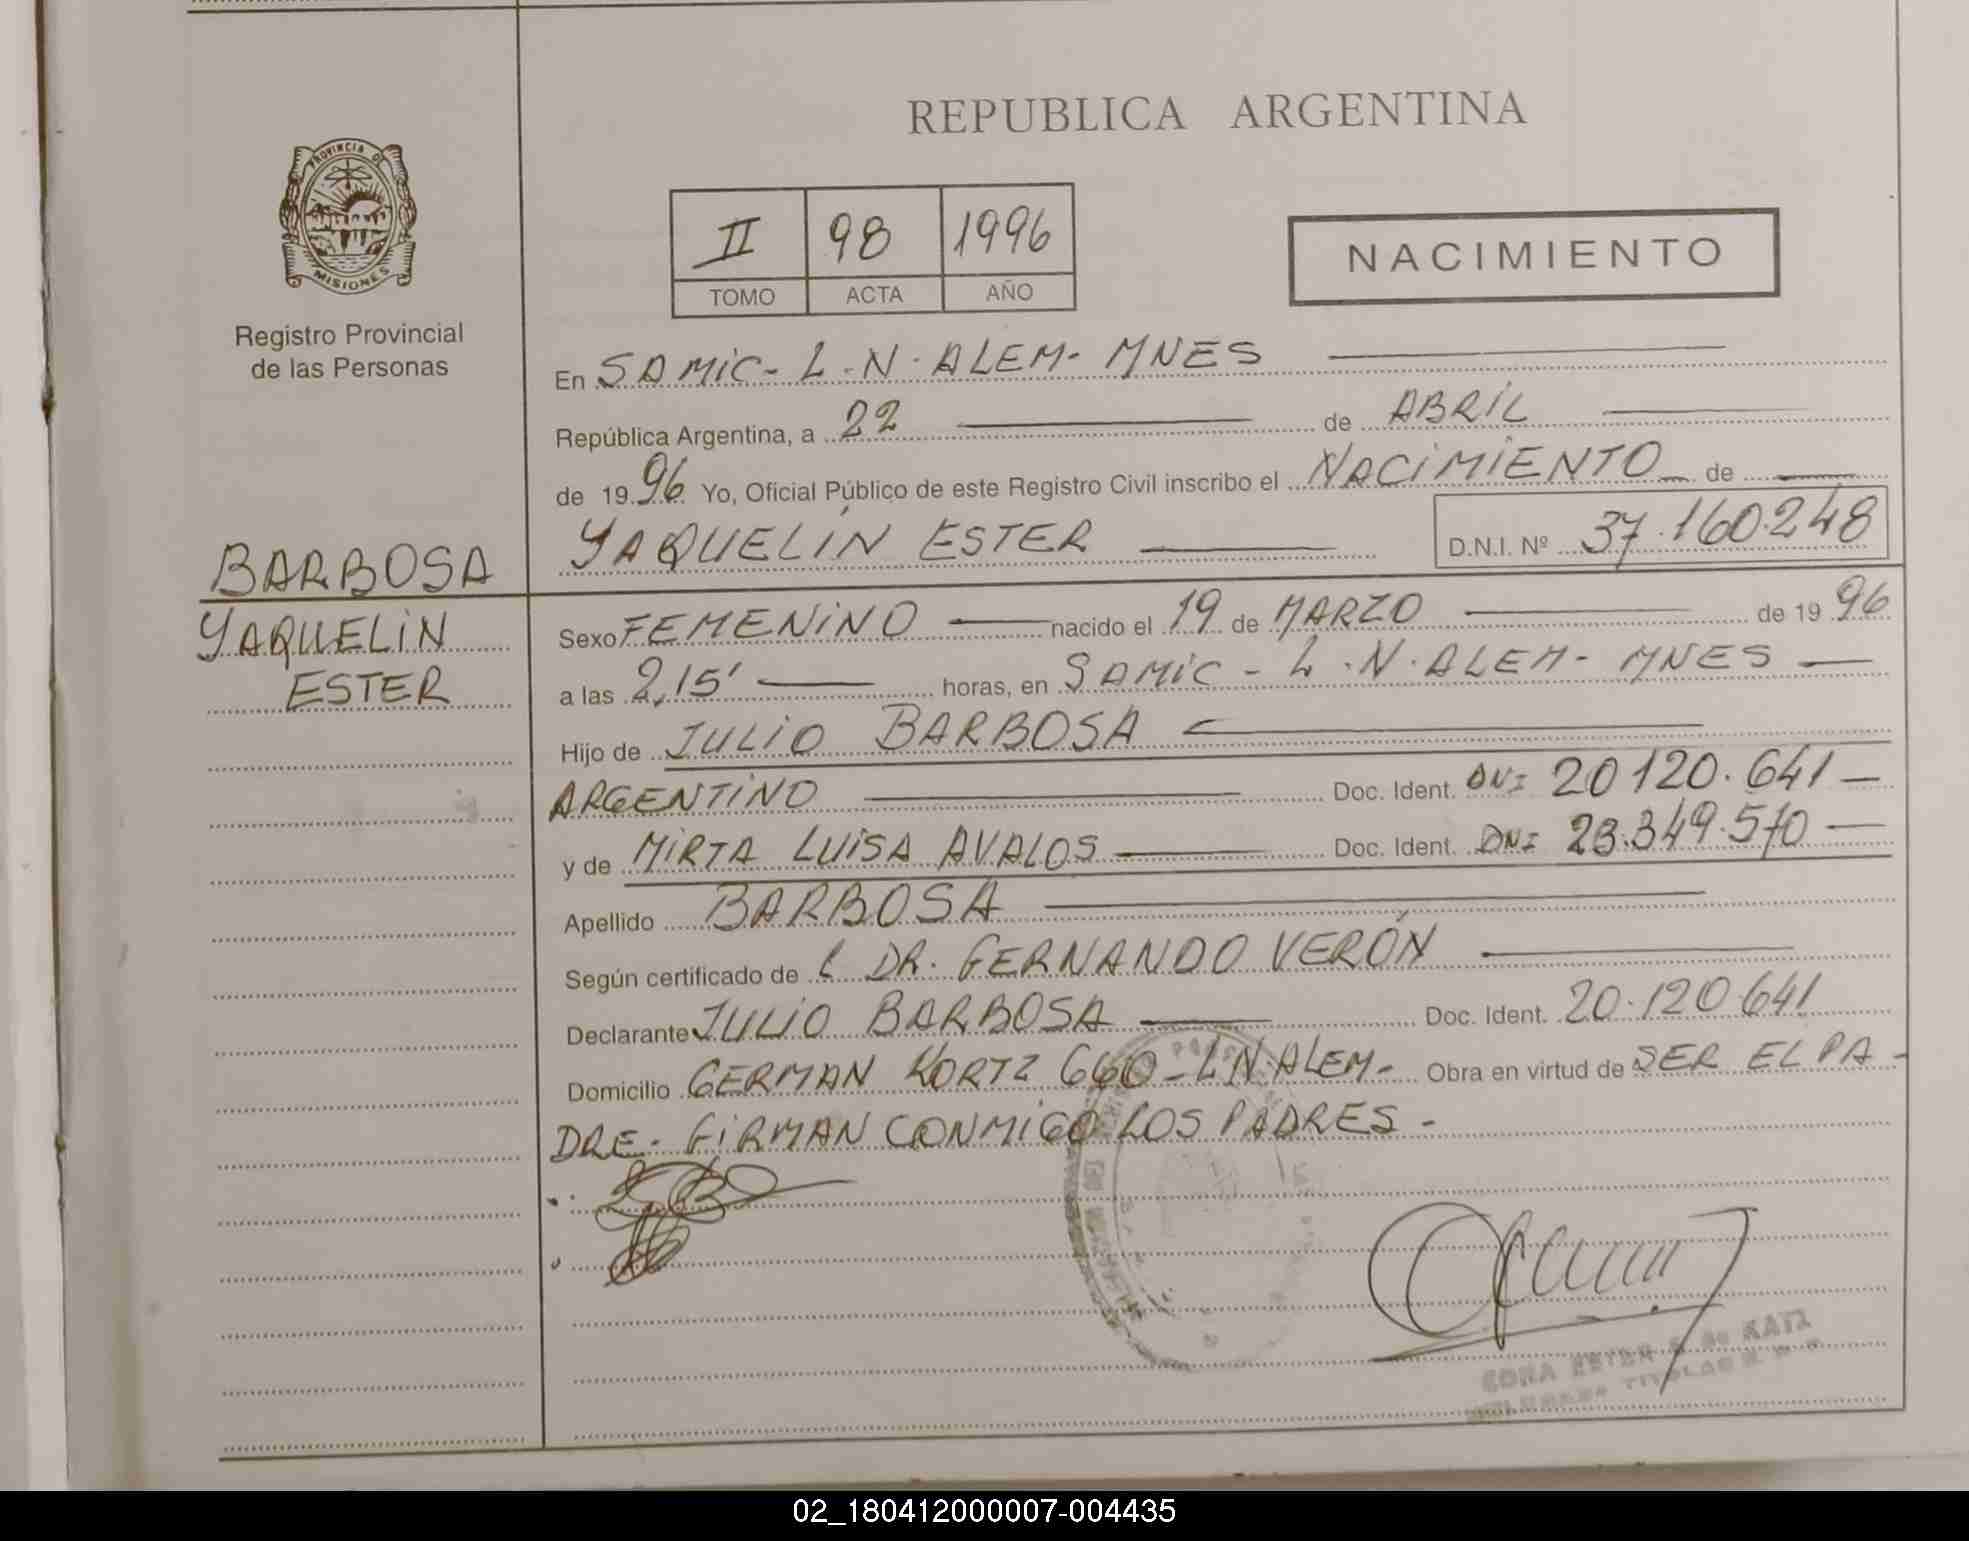 REPUBLICA ARGENTINA
PROVINCIA DE
MISIONES
Registro Provincial
de las Personas
II 98 1996
TOMO ACTA AÑO
NACIMIENTO
En SAMIC - L.N. ALEM - MNES
República Argentina, a 22 de ABRIL
de 1996 Yo, Oficial Público de este Registro Civil inscribo el NACIMIENTO de
YAQUELIN ESTER D.N.I. Nº 37.160.248
BARBOSA
YAQUELIN
ESTER
Sexo FEMENINO nacido el 19 de MARZO de 1996
a las 2,15' horas, en SAMIC - L.N. ALEM - MNES
Hijo de JULIO BARBOSA
ARGENTINO Doc. Ident. DNI 20120.641
y de MIRTA LUISA AVALOS Doc. Ident. DNI 23.349.570
Apellido BARBOSA
Según certificado de DR. FERNANDO VERÓN
Declarante JULIO BARBOSA Doc. Ident. 20.120.641
Domicilio GERMAN KORTZ 660 - LN. ALEM - Obra en virtud de SER EL PA-
DRE - FIRMAN CONMIGO LOS PADRES -
02_180412000007-004435